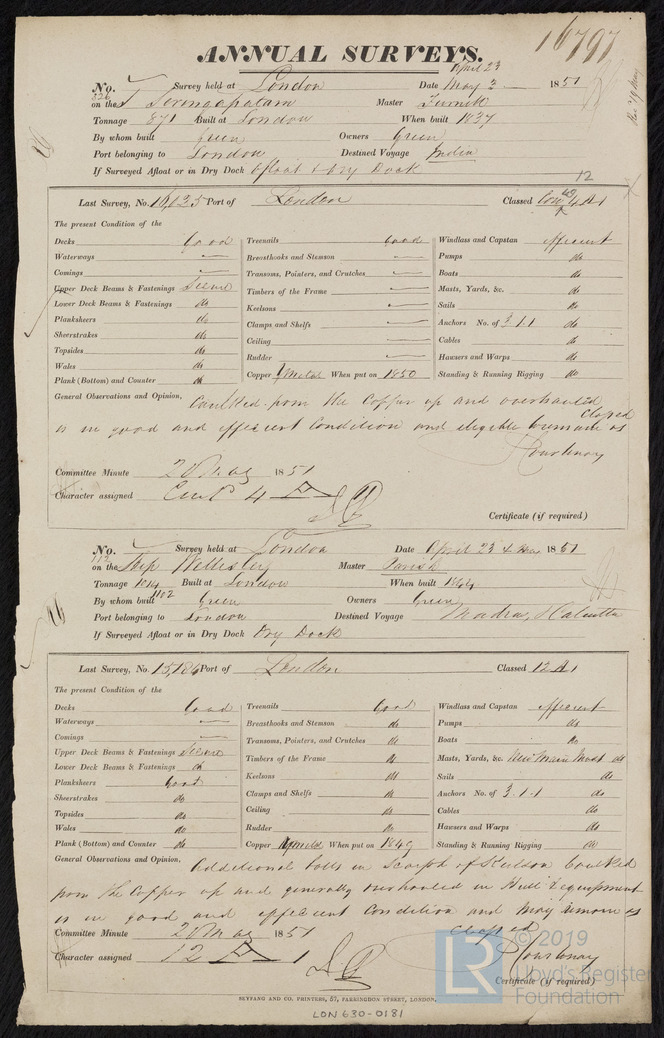 16797
ANNUAL SURVEYS.
No. 326 Survey held at London Date April 23 May 3 1851
on the Seringapatam Master Furnell
Tonnage 871 Built at London When built 1837
By whom built Green Owners Green
Port belonging to London Destined Voyage India
If Surveyed Afloat or in Dry Dock Afloat & Dry Dock
12
Last Survey, No. 16,035 Port of London Classed A1
The present Condition of the
Decks Good Treenails Good Windlass and Capstan efficient
Waterways Breasthooks and Stemson Pumps do
Comings Transoms, Pointers, and Crutches Boats do
Upper Deck Beams & Fastenings Timbers of the Frame Masts, Yards, &c. do
Lower Deck Beams & Fastenings do Keelsons Sails do
Planksheers do Clamps and Shelfs Anchors No. of 3.1.1 do
Sheerstrakes do Ceiling Cables do
Topsides do Rudder Hawsers and Warps do
Wales do Copper When put on 1850 Standing & Running Rigging do
Plank (Bottom) and Counter do
General Observations and Opinion, Caulked from the Copper up and overhauled
is in good and efficient Condition and eligible to remain as Classed
Courtenay
Committee Minute 2 May 1851
Character assigned 4 A
Certificate (if required)
No. 112 Survey held at London Date April 23 & May 1851
on the Ship Wellesley Master Parish
Tonnage 1014 Built at London When built 1844
By whom built Green Owners Green
1102
Port belonging to London Destined Voyage Madras & Calcutta
If Surveyed Afloat or in Dry Dock Dry Dock
Last Survey, No. 15,186 Port of London Classed 12 A1
The present Condition of the
Decks Good Treenails Good Windlass and Capstan efficient
Waterways Breasthooks and Stemson do Pumps do
Comings Transoms, Pointers, and Crutches do Boats do
Upper Deck Beams & Fastenings Timbers of the Frame do Masts, Yards, &c. New Main Mast do
Lower Deck Beams & Fastenings do Keelsons do Sails do
Planksheers Good Clamps and Shelfs do Anchors No. of 3.1.1 do
Sheerstrakes do Ceiling do Cables do
Topsides do Rudder do Hawsers and Warps do
Wales do Copper When put on 1849 Standing & Running Rigging do
Plank (Bottom) and Counter do
General Observations and Opinion, Additional bolts in Scarph of Keelson Caulked
from the Copper up and generally overhauled in Hull & equipment
is in good and efficient condition and may remain as
Classed
Committee Minute 2 May 1851
Courtenay
Character assigned 12 A 1
Certificate (if required)
SEYFANG AND CO. PRINTERS, 57, FARRINGDON STREET, LONDON.
LON 630-0181
LR
© 2019
Lloyd's Register
Foundation